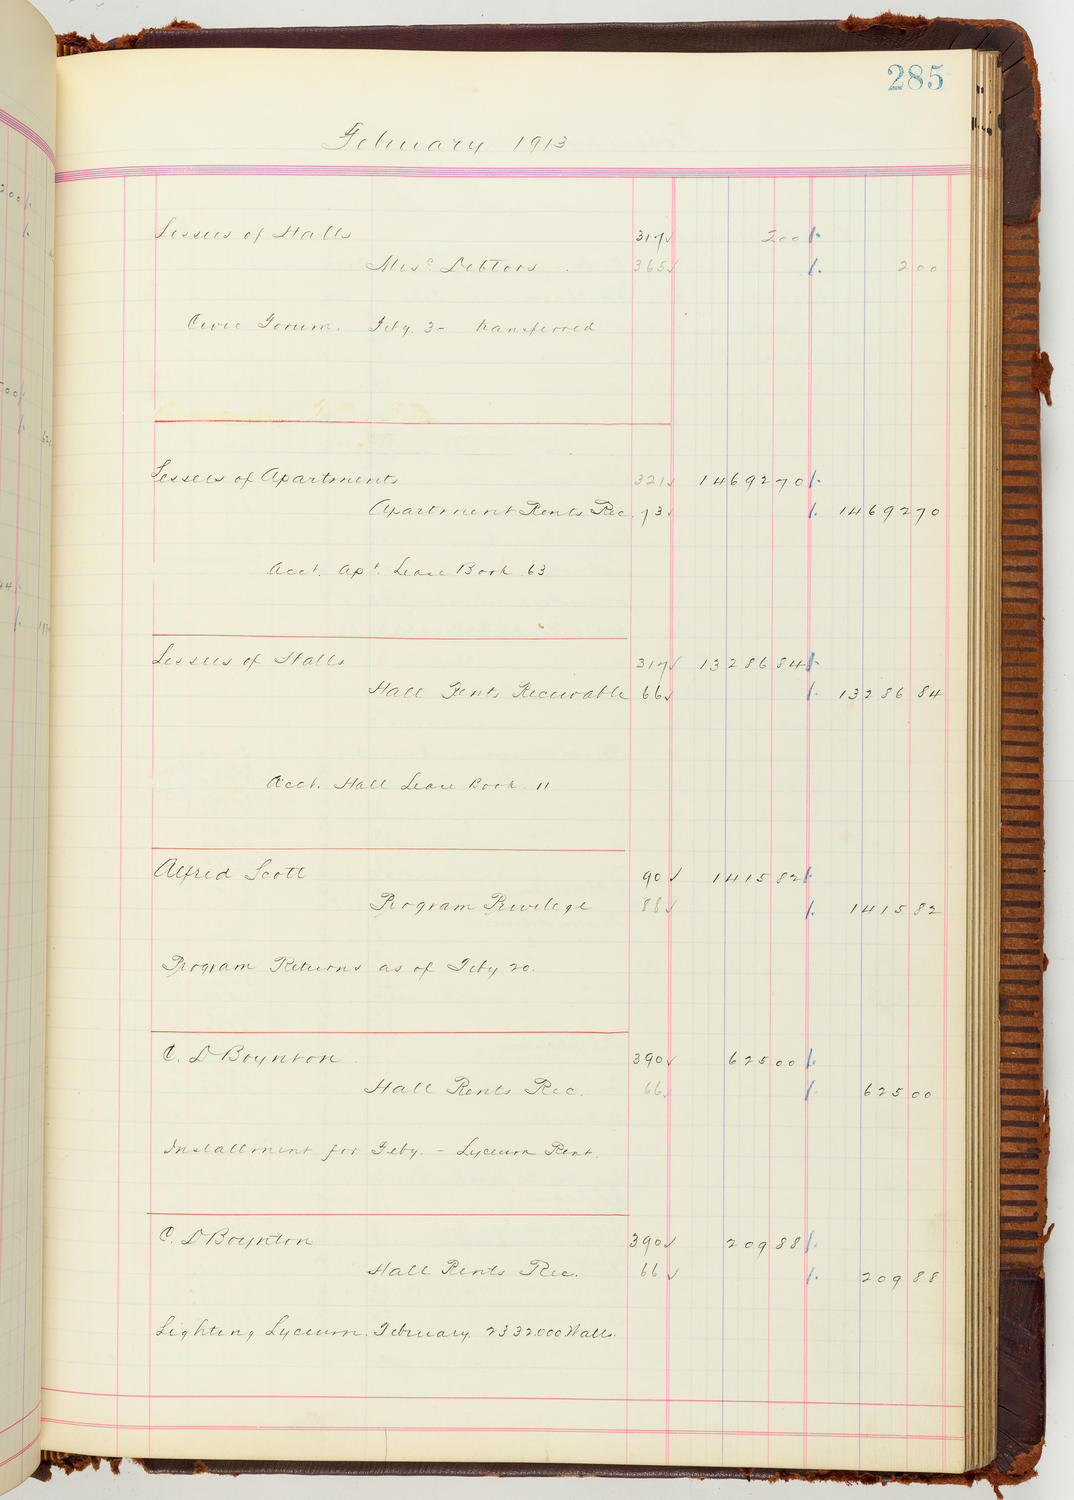 285
February 1913
Lessees of Halls 317 ✓ 200
Misc. Debtors 365 ✓ 200
Civic Forum. Feby. 3 - transferred
Lessees of Apartments 321 ✓ 1469270
Apartment Rents Rec. 73 ✓ 1469270
Acct. Apt. Lease Book 63
Lessees of Halls 317 ✓ 1328684
Hall Rents Receivable 66 ✓ 1328684
Acct. Hall Lease Book 11
Alfred Scott 90 ✓ 141582
Program Privilege 88 ✓ 141582
Program Returns as of Feby 20.
C. D Boynton 390 ✓ 62500
Hall Rents Rec. 66 ✓ 62500
Installment for Feby. - Lyceum Rent.
C. D Boynton 390 ✓ 20988
Hall Rents Rec. 66 ✓ 20988
Lighting Lyceum. February. 2332000 Watts.